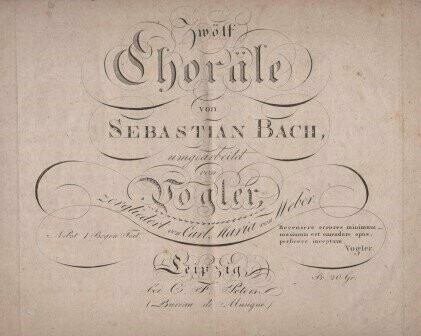 Zwölf
Choräle
von
SEBASTIAN BACH,
umgearbeitet
von
Vogler,
zergliedert von Carl Maria von Weber
Nebst 1 Bogen Text
Recensere errores minimum
maximum est emendare opus,
perficere inceptum
Vogler.
Leipzig,
bei C. F. Peters
(Bureau de Musique)
Pr. 20 Gr.